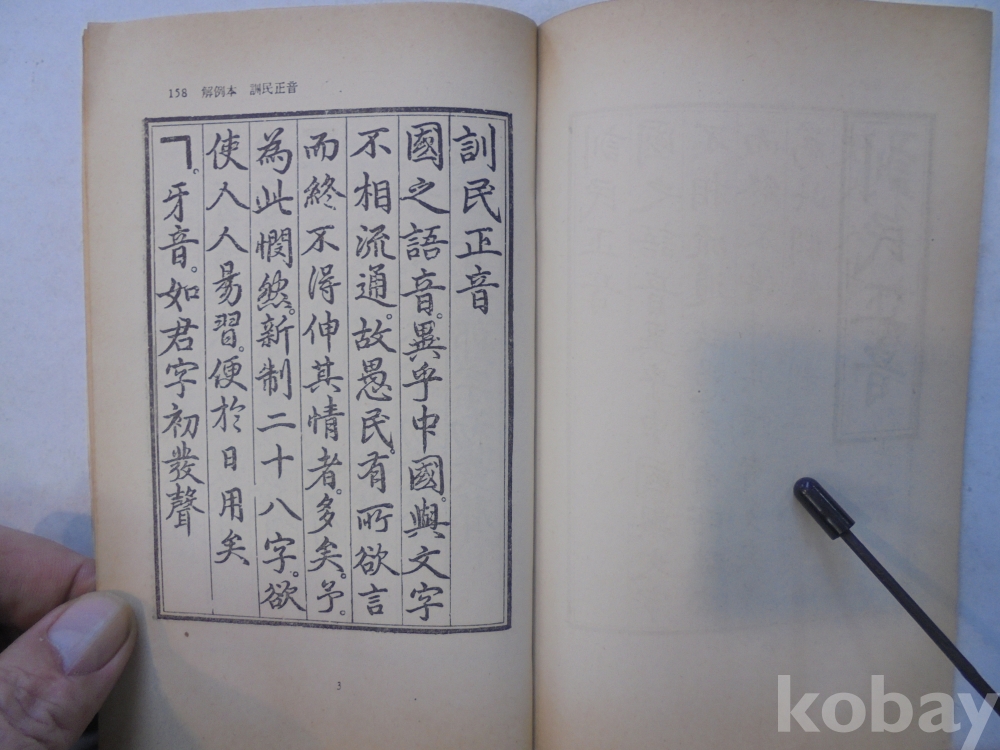 158 解例本 訓民正音
訓民正音
國之語音。異乎中國。與文字
不相流通。故愚民。有所欲言
而終不得伸其情者。多矣。予。
為此憫然。新制二十八字。欲
使人人易習。便於日用矣
ㄱ。牙音。如君字初發聲
3
kobay